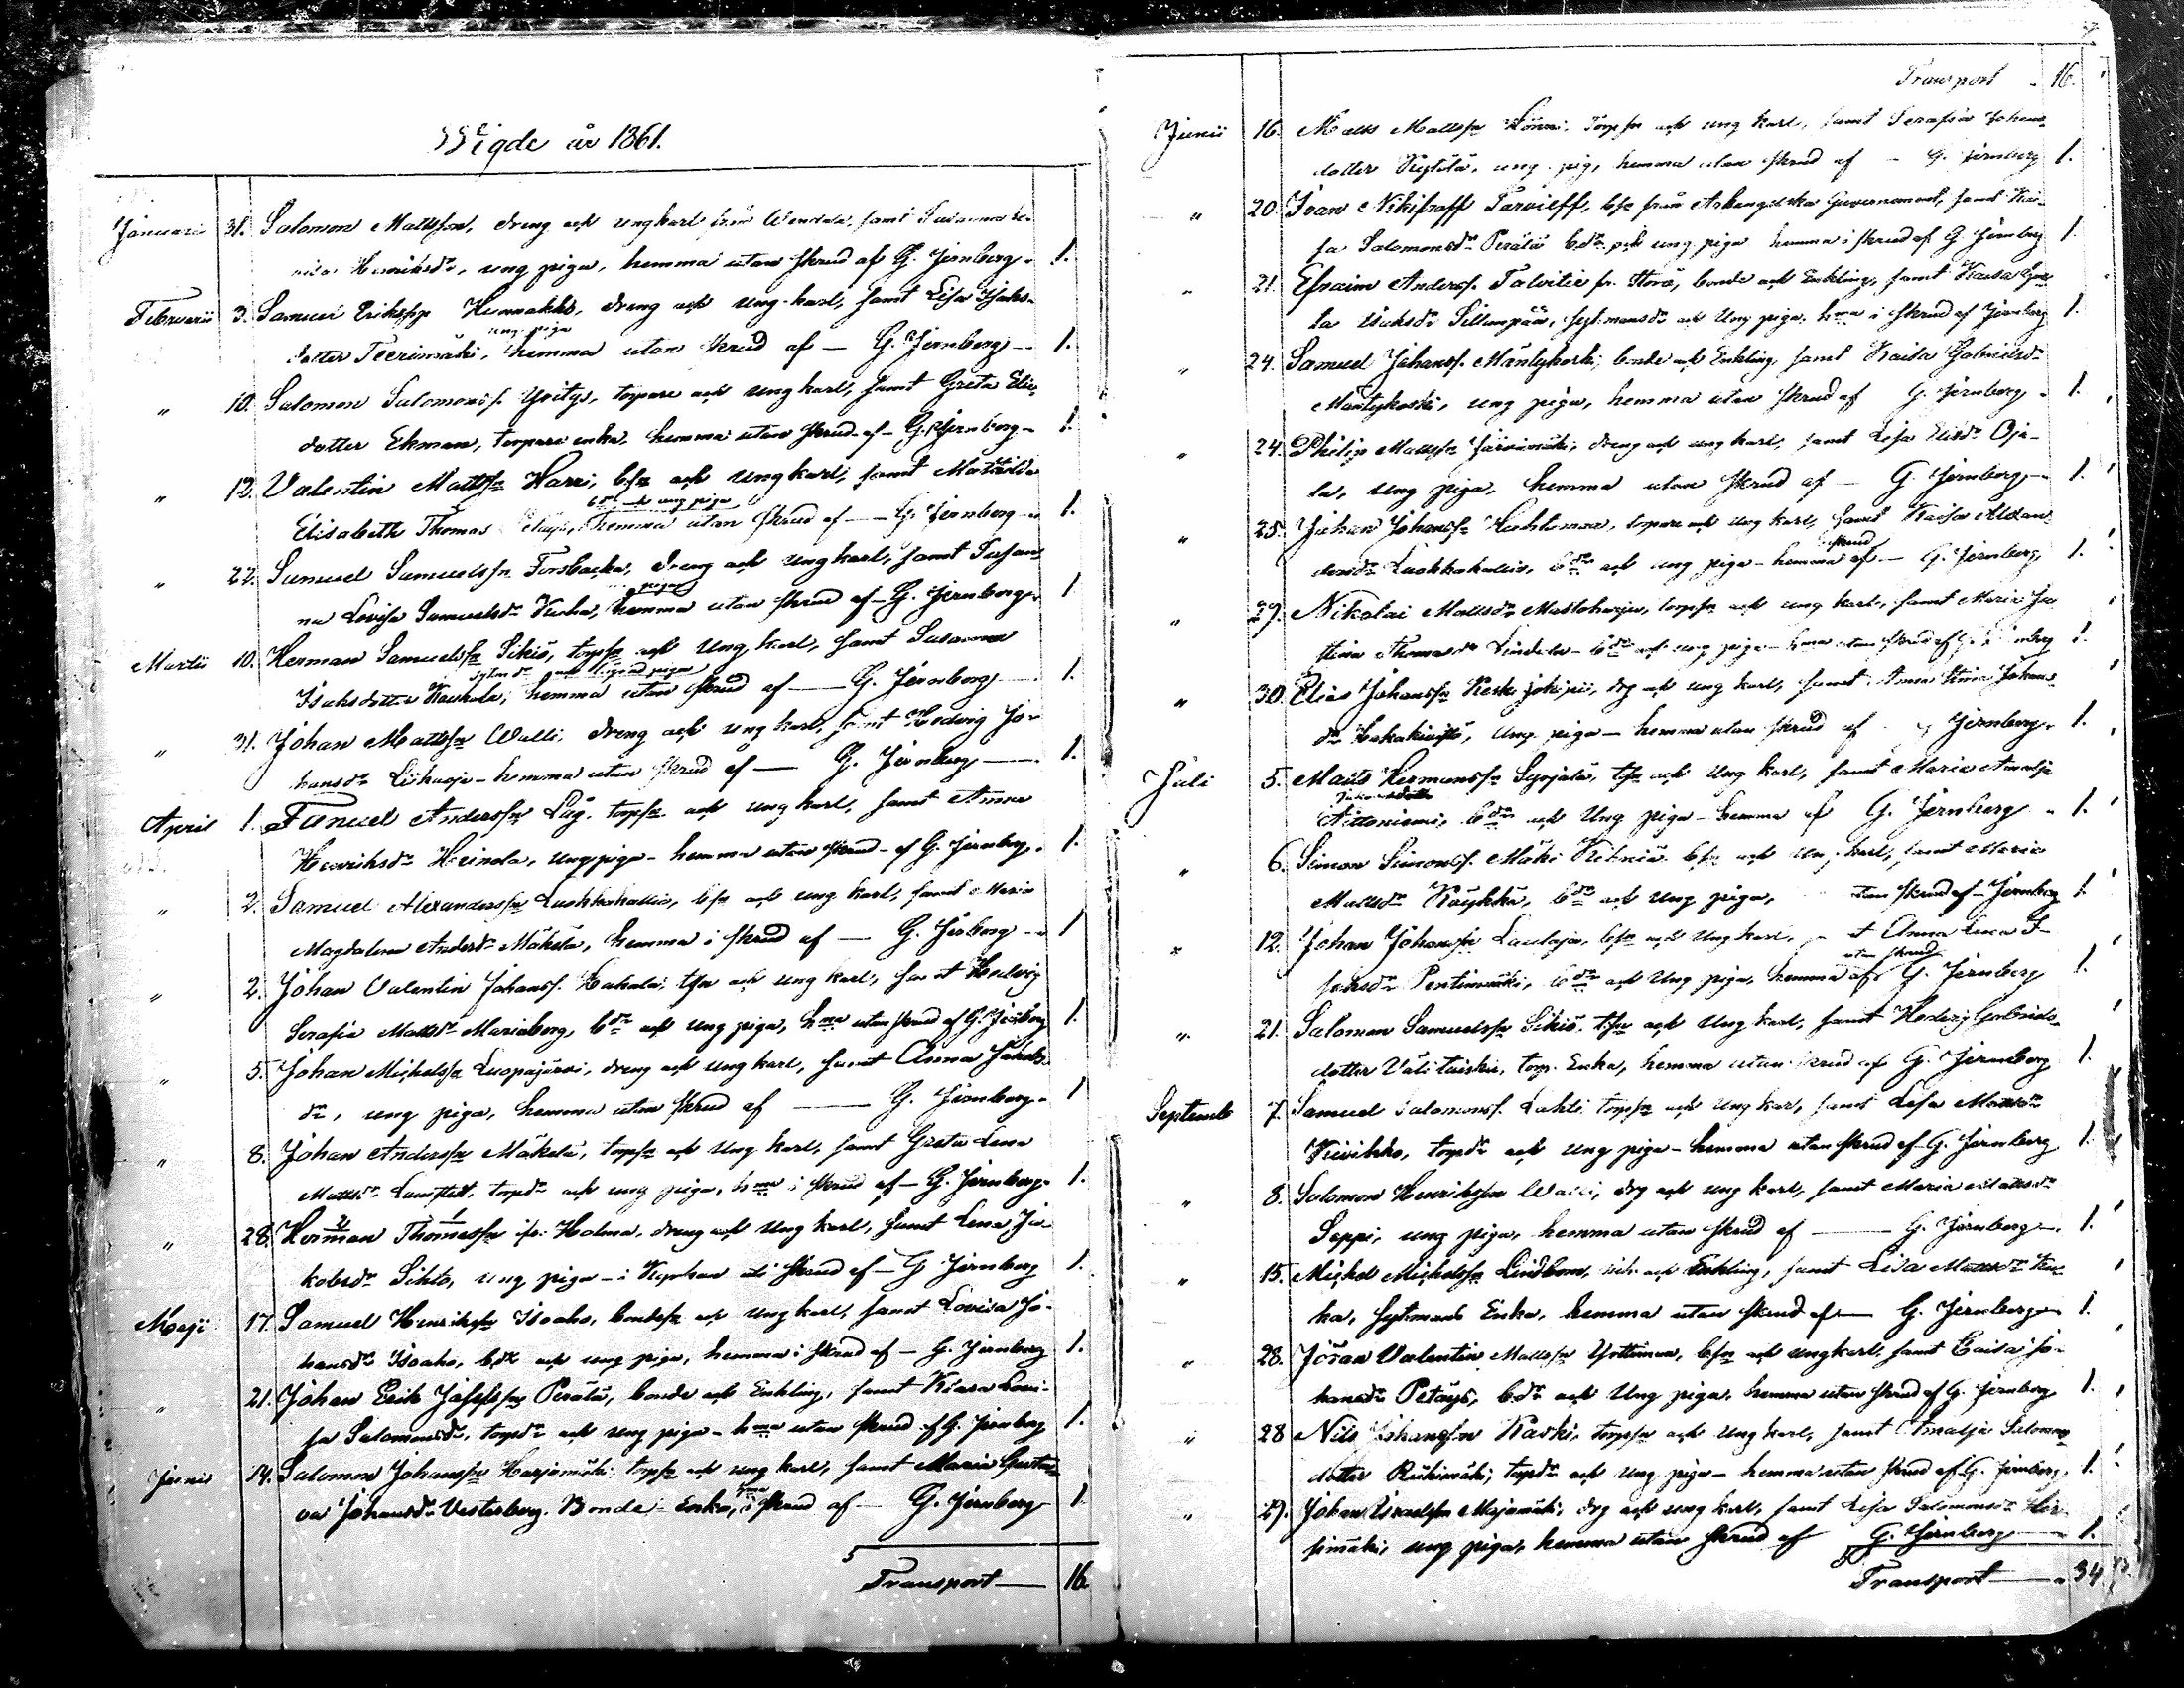 Wigde år 1861.
Januarii 31. Salomon Mattsson, dreng och ungkarl från Wendala, samt Susanna
Henriksdr, ung piga, hemma utan skrud af G. Jernberg 1.
Februarii 3. Samuel Eriksson Kunnakko, dreng och ung karl, samt Lisa Isaks-
ung piga
dotter Teerimäki, hemma utan skrud af — G. Jernberg — 1.
" 10. Salomon Salomonss. Yritys, torpare och ungkarl, samt Greta Elia
dotter Ekman, torpare enka, hemma utan skrud af — G. Jernberg — 1.
" 12. Valentin Mattssn Harri, bsn och ungkarl, samt Mathilda
bdr och ung piga
Elisabeth Thomas hemma utan skrud af — G. Jernberg — 1.
" 22. Samuel Samuelssn Forsbacka, dreng och ungkarl, samt Susan-
piga
na Lovisa Samuelsdr hemma utan skrud af — G. Jernberg 1
Martii 10. Herman Samuelssn Sikiö, torpsn och Ung karl, samt Susanna
Isaksdotter Kaukola, hemma utan skrud af — G. Jernberg 1.
" 31. Johan Mattssn Walli, dreng och ung karl, samt Hedvig Jo-
hansdr Liikuaja — hemma utan skrud af — G. Jernberg — 1.
April 1. Fanuel Anderssn Låg, torpsn och ung karl, samt Anna
Henriksdr Heinola, ung piga — hemma utan skrud — af G. Jernberg. 1.
" 2. Samuel Alexanderssn Luohkakallio, bsn och ung karl, samt Maria
Magdalena Andersdr Mäkelä, hemma i skrud af — G. Jerberg — 1
" 2. Johan Valentin Johanss. Kakala, tsn och ung karl, samt Hedvig
Serafia Mattsdr Mariaberg, bdr och ung piga, hma utan skrud af G. Jernberg 1.
" 5. Johan Michelssn Luopajärvi, dreng och ung karl, samt Anna Jakobs-
dr, ung piga, hemma utan skrud af — G. Jernberg. 1
" 8. Johan Anderssn Mäkelä, torpsn och Ung karl, samt Greta Lena
Mattsdr torpdr och ung piga, hma i skrud af — G. Jernberg. 1.
" 28. Herman Thomassn Holma, dreng och ung karl, samt Lena Ja-
kobsdr Sihto, ung piga — i Kyrkan uti skrud af — G Jernberg 1.
Maji 17. Samuel Henrikssn Isoaho, bondsn och ung karl, samt Lovisa Jo-
hansdr Isoaho, bdr och ung piga, hemma i skrud af — G. Jernberg 1.
" 21. Johan Erik Josefssn Perälä, bonde och Enkling, samt Klara Lovi-
sa Salomonsdr, torpdr och ung piga — hma utan skrud af G. Jernberg 1.
Junii 14. Salomon Johanssn Harjamäki, torpsn och ung karl, samt Maria Gusta-
va Johansdr Vesterberg. Bonde Enka, i skrud af — G. Jernberg 1.
Transport — 16
Transport 16.
Junii 16. Matts Mattssn torpsn och ung karl, samt Serafia Johans-
dotter ung piga, hemma utan skrud af — G. Jernberg 1.
" 20. Ivan Nikifraff Tarvieff, bsn från Arkangelska Guvernement, samt Kai-
sa Salomonsdr Perälä bdr och ung piga hemma i skrud af G. Jernberg 1.
" 21. Efraim Anderss. Talvitie fr. Storå, bonde och Enkling, samt Kaisa
Isaksdr Sillanpää, sytmansdr och Ung piga, hma i skrud af Jernberg 1.
" 24. Samuel Johanss. Mäntykoski, bonde och Enkling, samt Kaisa Gabrielsdr
Mäntykoski, ung piga, hemma utan skrud af G. Jernberg 1.
" 24. Philip Mattssn Järvimäki, dreng och ung karl, samt Lisa Eliedr Oja-
la, ung piga, hemma utan skrud af — G. Jernberg 1.
" 25. Johan Johanssn torpare och ung karl, samt Kaisa Alexan-
skrud
dersdr Luohkakallio, bdr och ung piga — hemma af — G. Jernberg, 1.
" 29. Nikolai Mattsdr torpsn och ung karl, samt Maria Ju
stina Thomasdr Lindala — bdr och ung piga — hma utan skrud af G. Jernberg 1.
" 30. Elias Johanssn Keski Jokipii, drg och ung karl, samt Anna Stina Johans-
dr ung piga — hemma utan skrud af G Jernberg. 1.
Juli 5. Matts Hermanssn Syrjälä, tsn och Ung karl, samt Maria Amalja
Nittoniemi, bdr och Ung piga — hemma af G. Jernberg 1.
" 6. Simon Simonss. Mäki Ritniä bsn och ung karl, samt Maria
Mattsdr Köykkä, bdr och ung piga, utan skrud af — Jernberg 1.
" 12. Johan Johanssn Laulaja, bsn och Ung karl, samt Anna Lena
utan skrud
Pentinmäki, bdr och Ung piga, hemma af G. Jernberg 1.
" 21. Salomon Samuelssn Sikiö, tsn och Ung karl, samt Hedvig Gabriels-
dotter Välitaiski, torp. Enka, hemma utan skrud af G. Jernberg 1.
Septemb 7. Samuel Salomonss. Lahti torpsn och Ung karl, samt Lisa Mattsdr
Kiviikko, torpdr och ung piga — hemma utan skrud af — G. Jernberg 1.
" 8. Salomon Henrikssn Walli, drg och ung karl, samt Maria Mattsdr
Seppi, ung piga, hemma utan skrud af — G. Jernberg. 1.
" 15. Michel Michelssn Lindbom, och Enkling, samt Lisa Mattsdr
ka, sytmans Enka, hemma utan skrud af — G. Jernberg 1.
" 28. Johan Valentin Mattssn Yöttinen, bsn och ungkarl, samt Caisa Jo-
hansdr Petäys, bdr och Ung piga, hemma utan skrud af G. Jernberg, 1.
" 28 Nils Johansson Kaski, torpsn och Ung karl, samt Amalja Salomons-
dotter Riihimäki, torpdr och ung piga — hemma utan skrud af G. Jernberg. 1.
" 29. Johan Israelssn Myjamäki, drg och ung karl, samt Lisa Salomonsdr
simäki, ung piga, hemma utan skrud af G. Jernberg 1.
Transport — 34